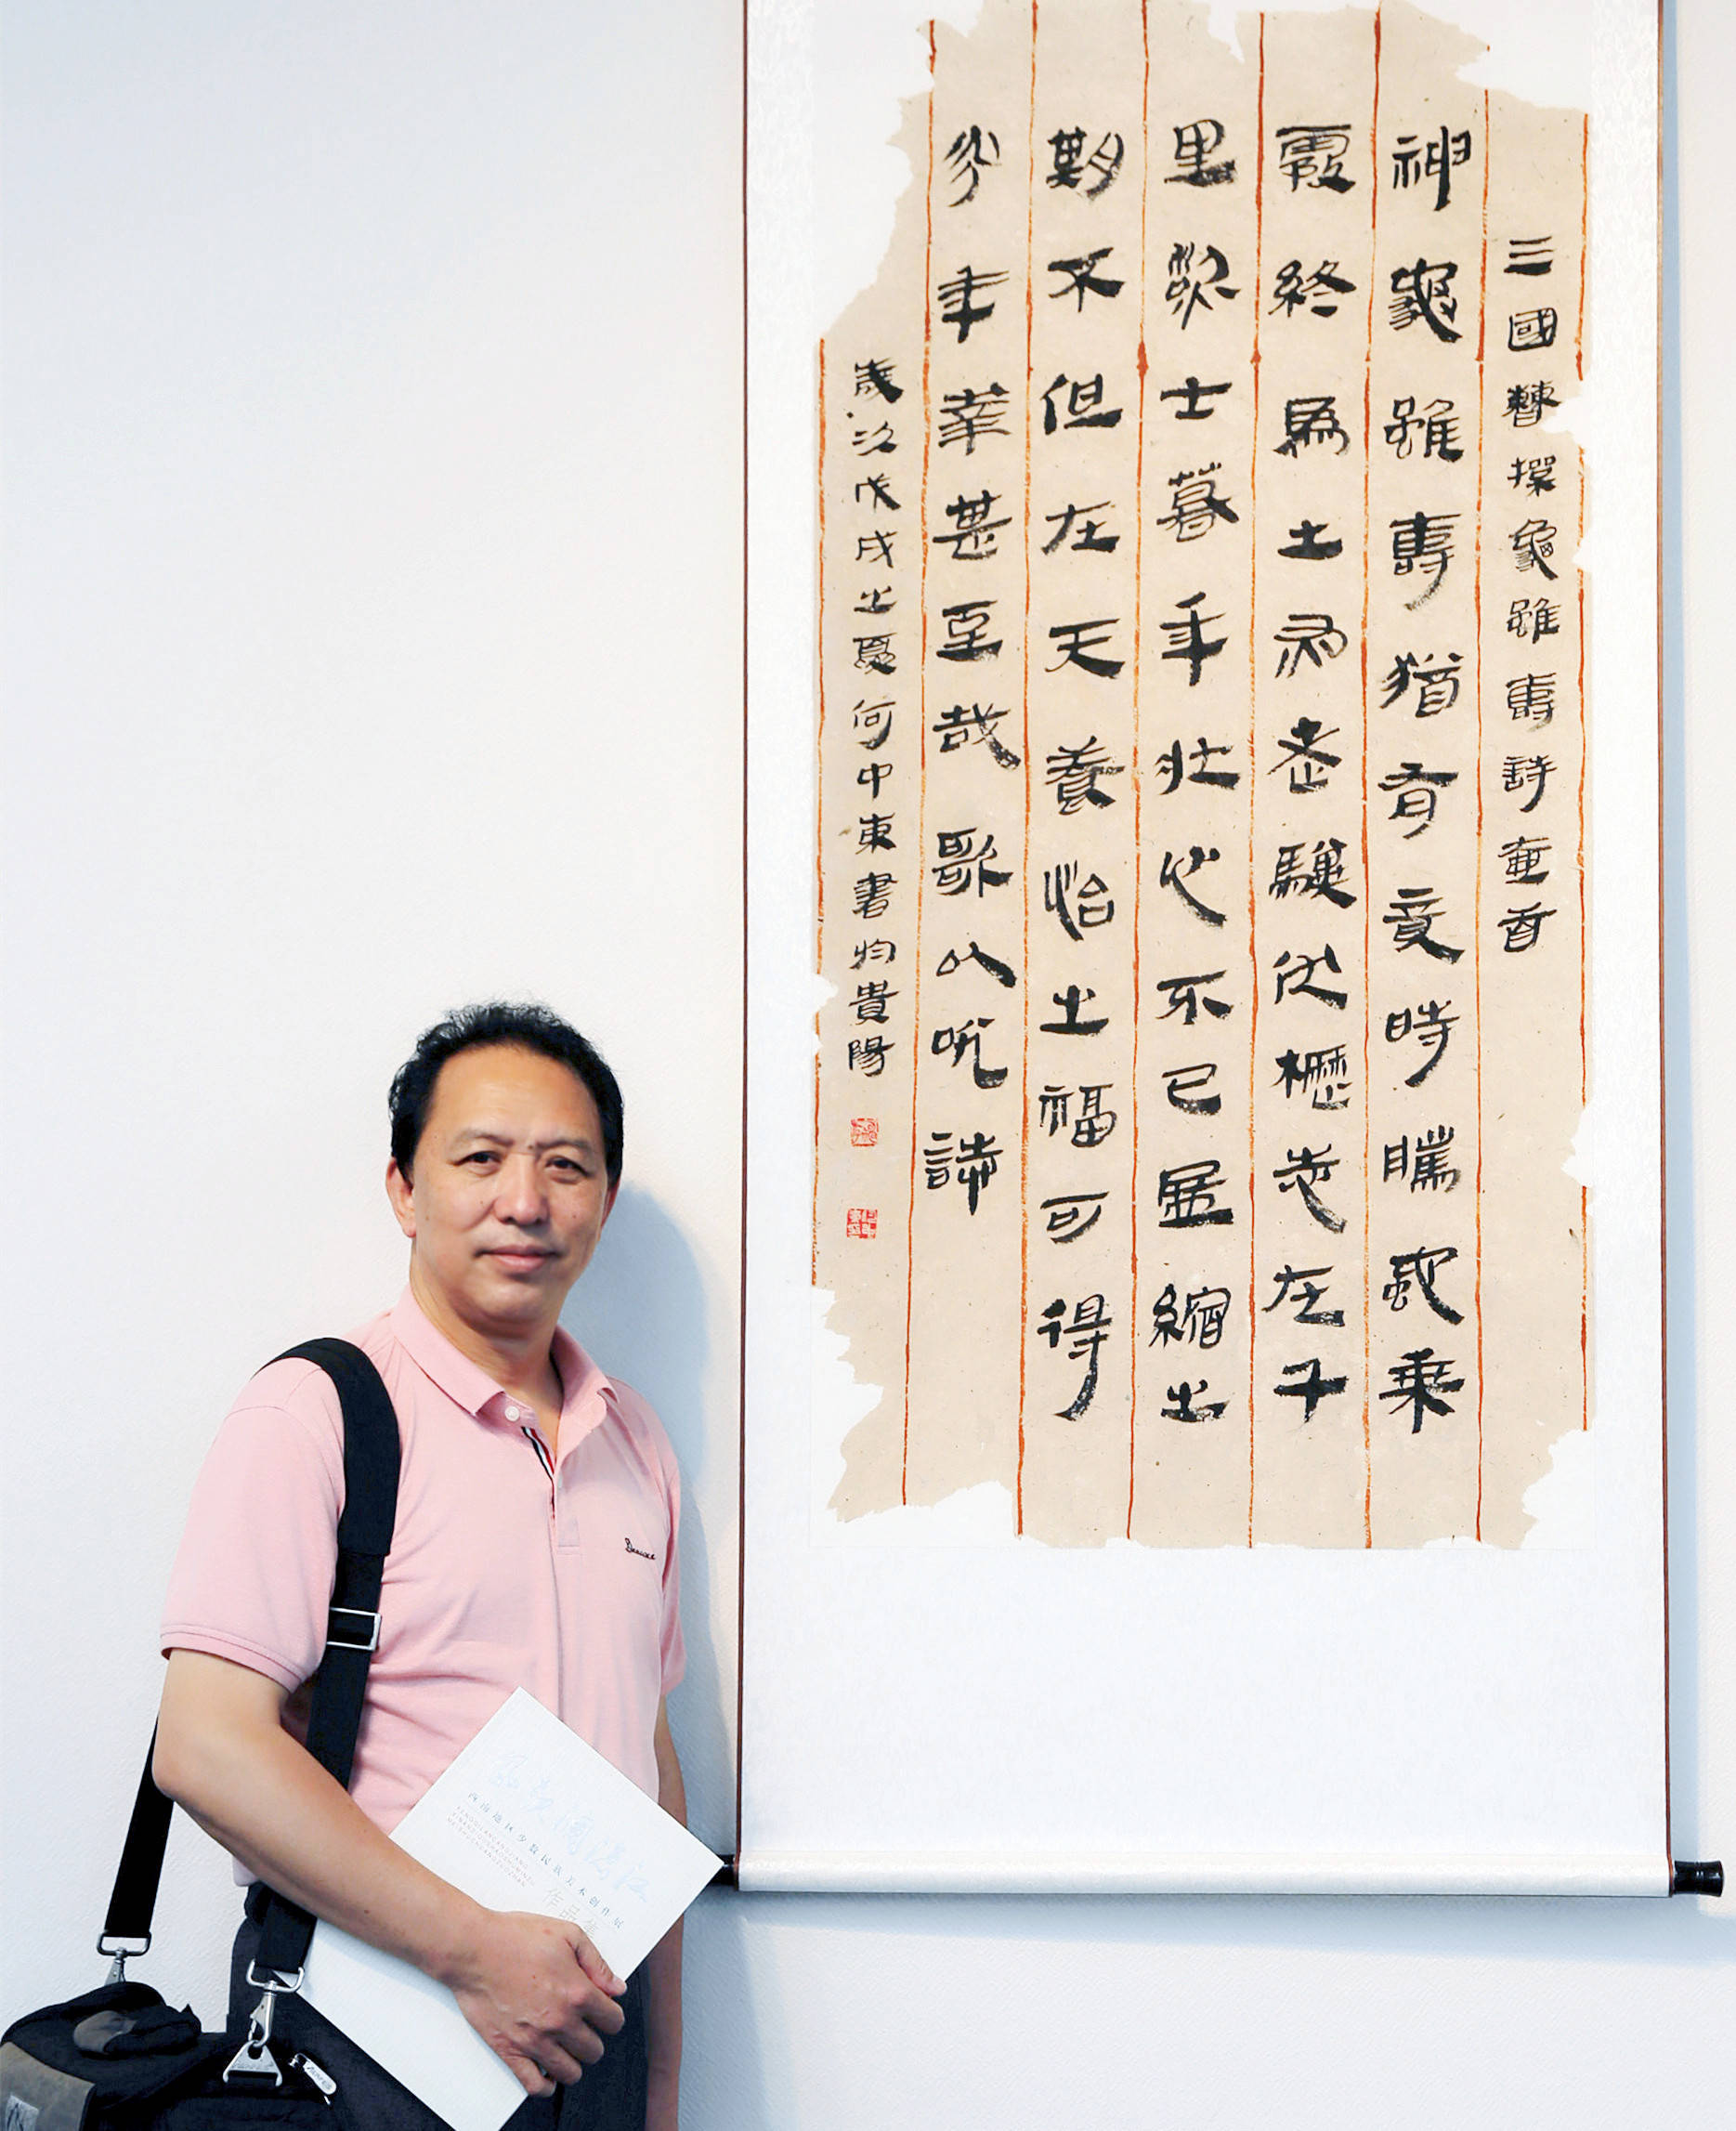 三國曹操龜雖壽詩壹首
神龜雖壽猶有竟時騰蛇乘
霞終爲土灰老驥伏櫪志在千
里烈士暮年壯心不已盈縮之
期不但在天養怡之福可得
永年幸甚至哉歌以咏詩
歲次戊戌之夏何中東書於貴陽
西南地区少数民族美术创作展
作品集